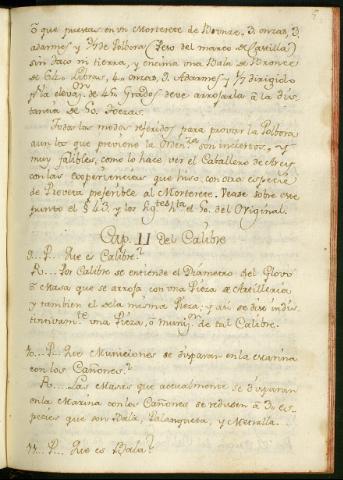 ò que puestas en un Morterete de Bronze, 3. onzas, 3.
adarmes y ¾ de Polbora (Peso del marco de Castilla)
sin taco ni tierra, y encima una Bala de Bronce
de 64 Libras, 4. onzas, 3. Adarmes y ½ dirigido
pr la elevaon de 45 Grados deve arrojarla à la dis
tancia de 90. Toezas.
Todas los modos referidos para provar la Polbora
aun los que previene la Ordenza son inciertos, y
muy falibles, como lo hace ver el Cavallero de Arcy
con las experiencias que hiso, con otra especie
de Proveta preferible al Morterete. Vease sobre este
punto el § 43. y los sigtes hta el 50. del Original.
Cap. II Del Calibre
9...P... Que es Calibre?
R... Por Calibre se entiende el Diametro del
ò Masa que se arroja con una Pieza de Artilleria
y tambien el dela misma Pieza; y asi se dice indis
tintivamte una Pieza, ò munion de tal Calibre.
10... P... Que Municiones se disparan en la Marina
con los Cañones?
R... Las Masas que actualmente se disparan
en la Marina con los Cañones se reducen à 3. es
pecies que son Bala, Palanqueta, y Metralla.
11... P... Que es Bala?